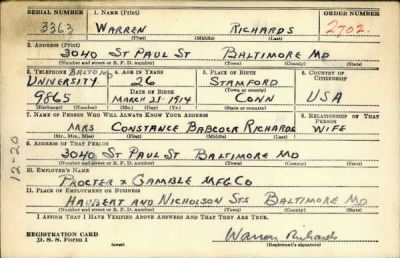 SERIAL NUMBER 1. NAME (Print) ORDER NUMBER
3363 WARREN RICHARDS 2702.
(First) (Middle) (Last)
2. ADDRESS (Print)
3040 ST PAUL ST BALTIMORE MD
(Number and street or R. F. D. number) (Town) (County) (State)
3. TELEPHONE BALTO MD 4. AGE IN YEARS 5. PLACE OF BIRTH 6. COUNTRY OF CITIZENSHIP
UNIVERSITY 26 STAMFORD
9865 MARCH 21-1914 CONN USA
7. NAME OF PERSON WHO WILL ALWAYS KNOW YOUR ADDRESS 8. RELATIONSHIP OF THAT PERSON
MRS CONSTANCE BABCOCK RICHARDS WIFE
(Mr., Mrs., Miss) (First) (Middle) (Last)
9. ADDRESS OF THAT PERSON
3040 ST PAUL ST BALTIMORE MD
(Number and street or R. F. D. number) (Town) (County) (State)
12-20
10. EMPLOYER'S NAME
PROCTER & GAMBLE MFG CO
11. PLACE OF EMPLOYMENT OR BUSINESS
HAUBERT AND NICHOLSON STS BALTIMORE MD
(Number and street or R. F. D. number) (Town) (County) (State)
I AFFIRM THAT I HAVE VERIFIED ABOVE ANSWERS AND THAT THEY ARE TRUE.
Warren Richards
REGISTRATION CARD
D. S. S. Form 1 (over) (Registrant's signature)